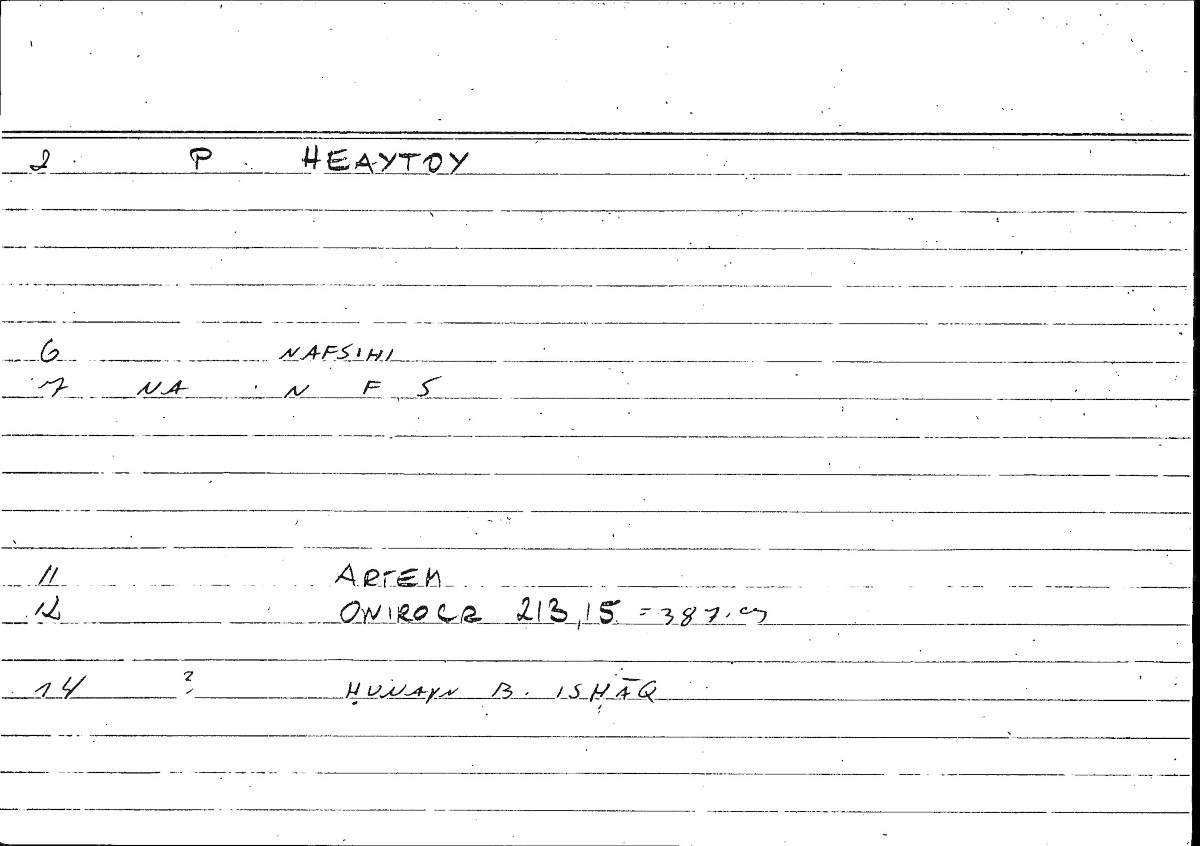 2 P HEAYTOY
6 NAFSIHI
7 NA N F S
11 ARTEM
12 ONIROCR 213,15 = 387.
14 ? ḤUNAYN B. ISḤĀQ